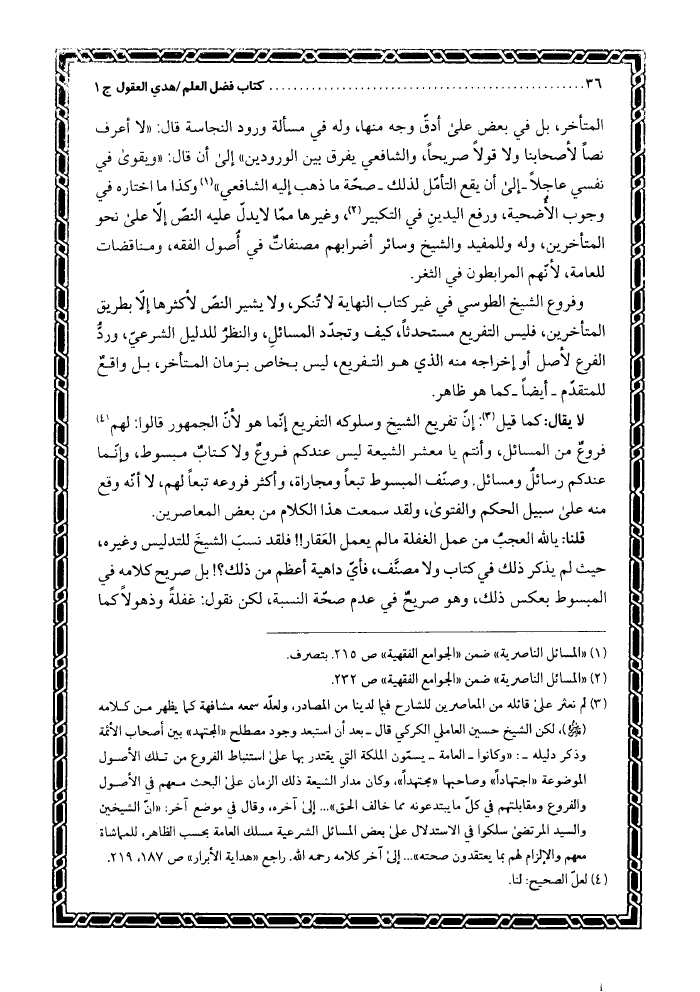 ٣٦ ................................................ كتاب فضل العلم/هدي العقول ج ١
المتأخر، بل في بعض علىٰ أدقّ وجه منها، وله في مسألة ورود النجاسة قال: «لا أعرف
نصاً لأصحابنا ولا قولاً صريحاً، والشافعي يفرق بين الورودين» إلىٰ أن قال: «ويقوىٰ في
نفسي عاجلاً ـ إلىٰ أن يقع التأمّل لذلك ـ صحّة ما ذهب إليه الشافعي»(١) وكذا ما اختاره في
وجوب الأُضحية، ورفع اليدينِ في التكبير(٢)، وغيرها ممّا لايدلّ عليه النصّ إلّا علىٰ نحو
المتأخرين، وله وللمفيد والشيخ وسائر أضرابهم مصنفاتٌ في أُصول الفقه، ومناقضات
للعامة، لأنّهم المرابطون في الثغر.
وفروع الشيخ الطوسي في غير كتاب النهاية لا تُنكر، ولا يشير النصّ لأكثرها إلّا بطريق
المتأخرين، فليس التفريع مستحدثاً، كيف وتجدّد المسائلِ، والنظرُ للدليل الشرعيّ، وردُّ
الفرع لأصل أو إخراجه منه الذي هو التفريع، ليس بخاص بزمان المتأخر، بل واقعٌ
للمتقدّم ـ أيضاً ـ كما هو ظاهر.
لا يقال: كما قيل(٣): إنّ تفريع الشيخ وسلوكه التفريع إنّما هو لأنّ الجمهور قالوا: لهم(٤)
فروعٌ من المسائل، وأنتم يا معشر الشيعة ليس عندكم فروعٌ ولا كتابٌ مبسوط، وإنّما
عندكم رسائلُ ومسائل. وصنّف المبسوط تبعاً ومجاراة، وأكثر فروعه تبعاً لهم، لا أنّه وقع
منه علىٰ سبيل الحكم والفتوىٰ، ولقد سمعت هذا الكلام من بعض المعاصرين.
قلنا: يالله العجبُ من عمل الغفلة مالم يعمل العَقار!! فلقد نسبَ الشيخَ للتدليس وغيره،
حيث لم يذكر ذلك في كتاب ولا مصنَّف، فأيّ داهية أعظم من ذلك؟! بل صريح كلامه في
المبسوط بعكس ذلك، وهو صريحٌ في عدم صحّة النسبة، لكن نقول: غفلةً وذهولاً كما
(١) «المسائل الناصرية» ضمن «الجوامع الفقهية» ص ٢١٥. بتصرف.
(٢) «المسائل الناصرية» ضمن «الجوامع الفقهية» ص ٢٣٢.
(٣) لم نعثر علىٰ قائله من المعاصرين للشارح فيما لدينا من المصادر، ولعلّه سمعه مشافهة كما يظهر من كلامه
(ﷺ)، لكن الشيخ حسين العاملي الكركي قال ـ بعد أن استبعد وجود مصطلح «المجتهد» بين أصحاب الأئمّة
وذكر دليله ـ : «وكانوا ـ العامة ـ يسمّون الملكة التي يقتدر بها علىٰ استنباط الفروع من تلك الأصول
الموضوعة «اجتهاداً» وصاحبها «مجتهداً»، وكان مدار الشيعة ذلك الزمان علىٰ البحث معهم في الأصول
والفروع ومقابلتهم في كلّ مايبتدعونه مما خالف الحق»... إلىٰ آخره، وقال في موضع آخر: «انّ الشيخين
والسيد المرتضىٰ سلكوا في الاستدلال علىٰ بعض المسائل الشرعية مسلك العامة بحسب الظاهر، للمماشاة
معهم والإلزام لهم بما يعتقدون صحته»... إلىٰ آخر كلامه رحمه الله. راجع «هداية الأبرار» ص ١٨٧، ٢١٩.
(٤) لعلّ الصحيح: لنا.